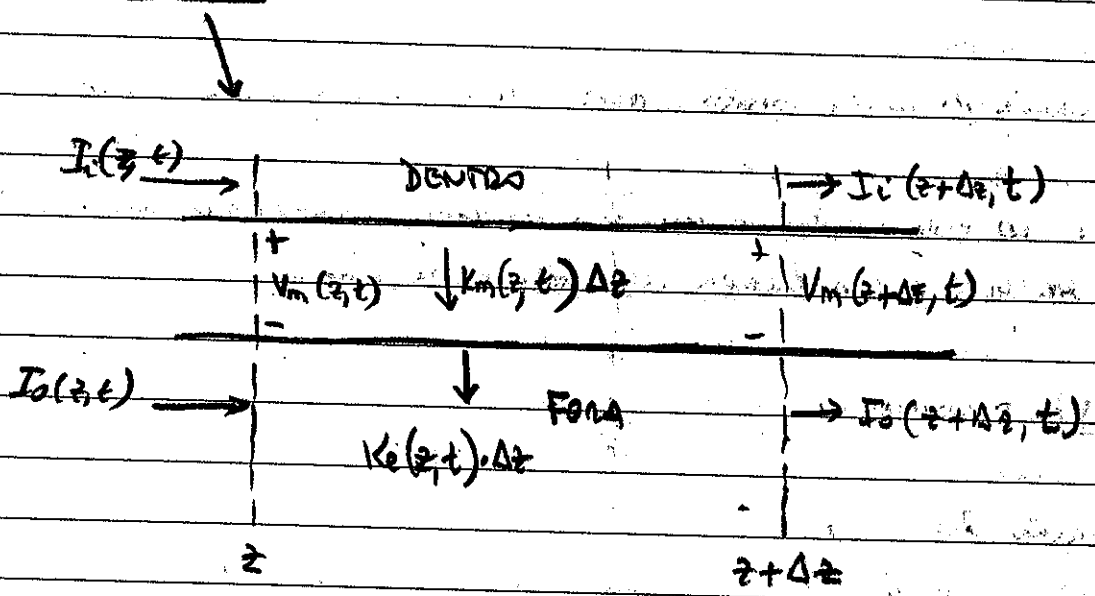 Ii(z, t) DENTRO Ii(z+Δz, t)
+ +
Vm(z, t) Km(z, t) Δz Vm(z+Δz, t)
- -
Io(z, t) FORA Io(z+Δz, t)
Ke(z, t)·Δz
z z+Δz